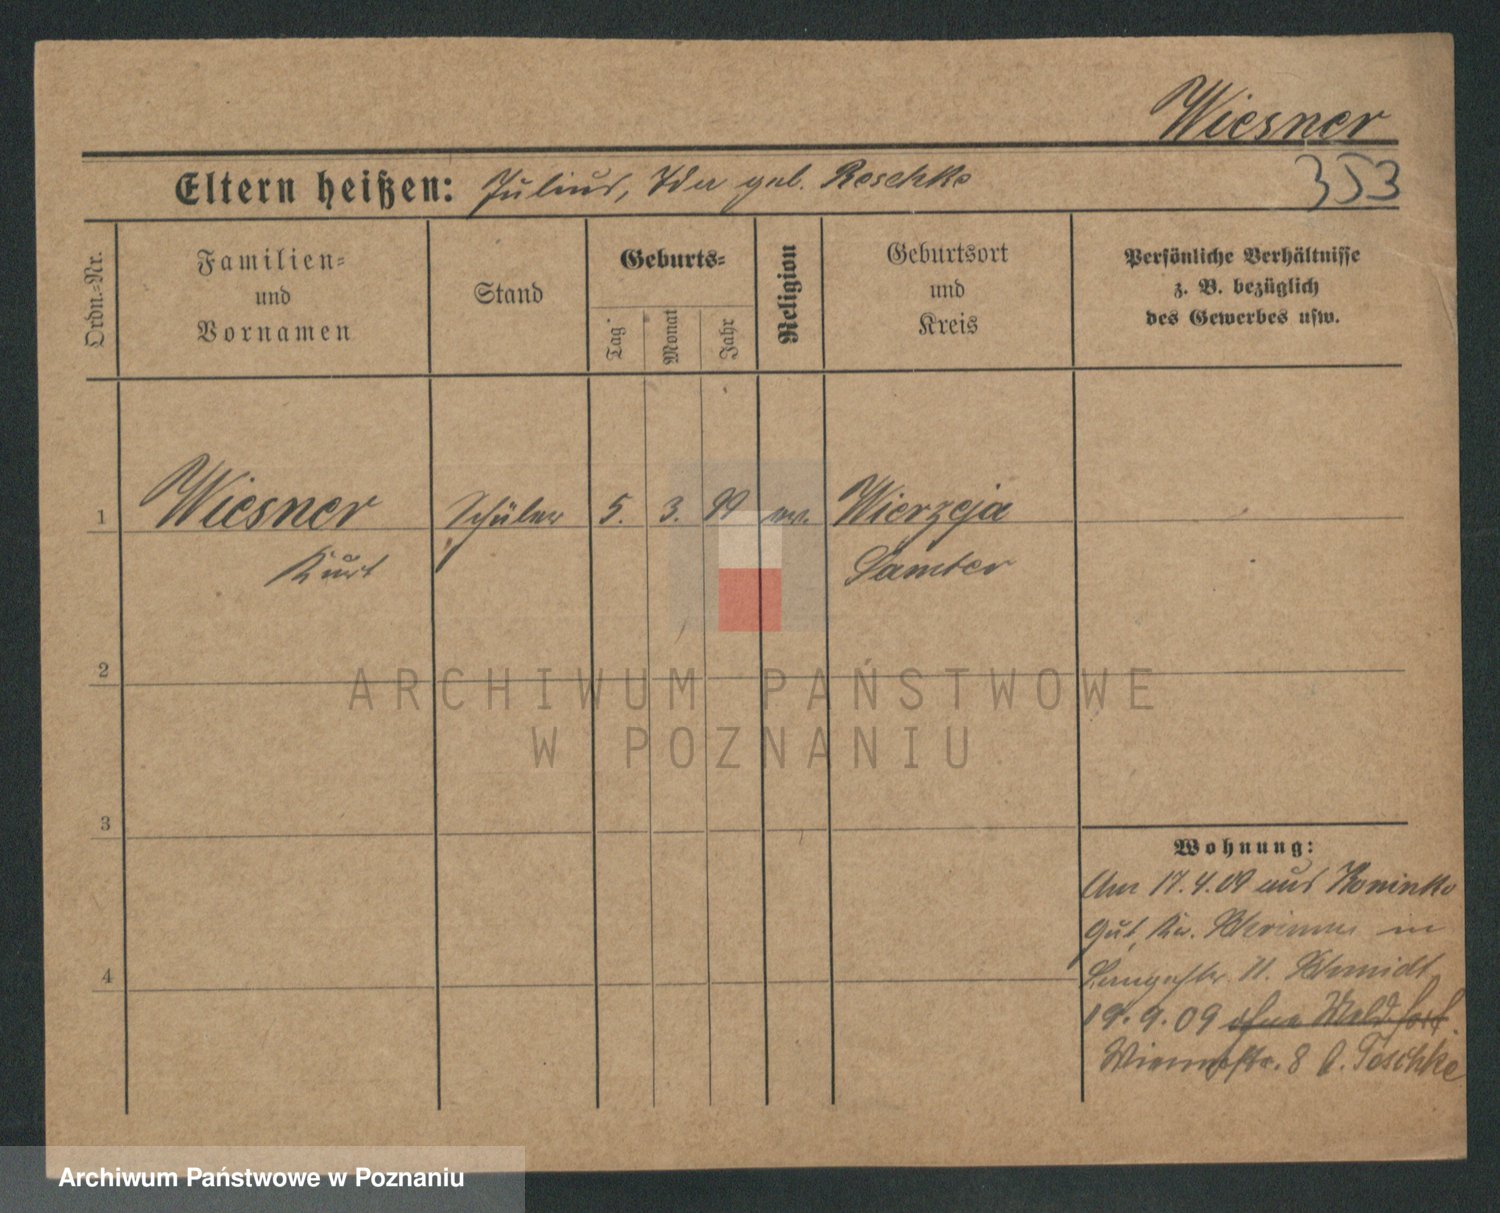 Wiesner
353
Eltern heißen: Julius, Ida geb. Reschke
Ordn.-Nr.
Familien-
und
Vornamen
Stand
Geburts-
Tag
Monat
Jahr
Religion
Geburtsort
und
Kreis
Persönliche Verhältnisse
z. B. bezüglich
des Gewerbes usw.
1
Wiesner Schüler 5. 3. 99 ev. Wierzeja
Kurt Samter
2
ARCHIWUM PAŃSTWOWE
W POZNANIU
3
Wohnung:
Am 17.4.09 aus Koninko
Gut, Kr. Schrimm in
Langestr. 11. Schmidt
19.9.09 ohne Meld. fort.
8 b. Toschke
4
Archiwum Państwowe w Poznaniu